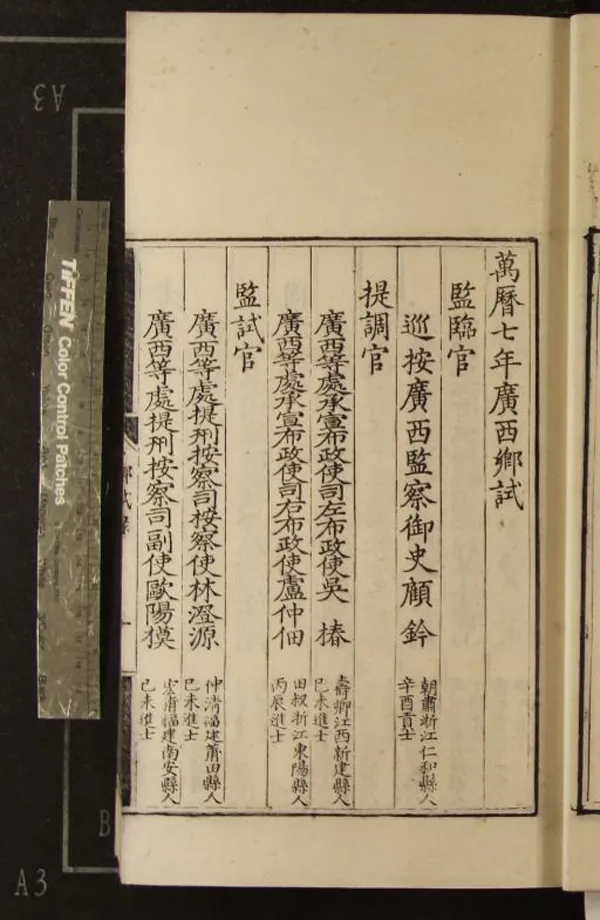 萬曆七年廣西鄉試
監臨官
巡按廣西監察御史顧鈐
朝肅浙江仁和縣人
辛酉貢士
提調官
廣西等處承宣布政使司左布政使吳椿
壽卿江西新建縣人
己未進士
廣西等處承宣布政使司右布政使盧仲佃
田叔浙江東陽縣人
丙辰進士
監試官
廣西等處提刑按察司按察使林澄源
仲清福建莆田縣人
己未進士
廣西等處提刑按察司副使歐陽模
宏甫福建南安縣人
己未進士
鄉試錄
一
TIFFEN Color Control Patches
A3
B
A3